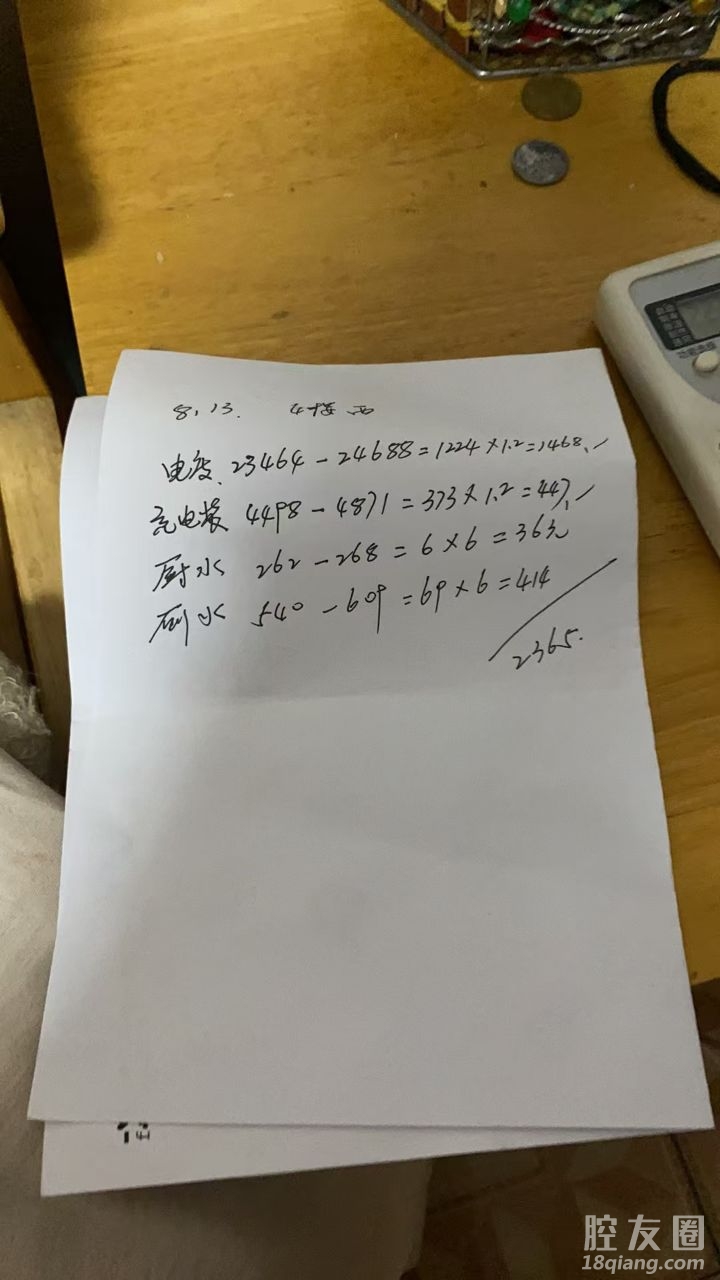 8.13. 4楼西
电度、23464-24688=1224×1.2=1468.
充电桩 4498-4871=373×1.2=447
厨水 262-268=6×6=36元
厕水 540-609=69×6=414
2365.
功能选择
腔友圈
18qiang.com